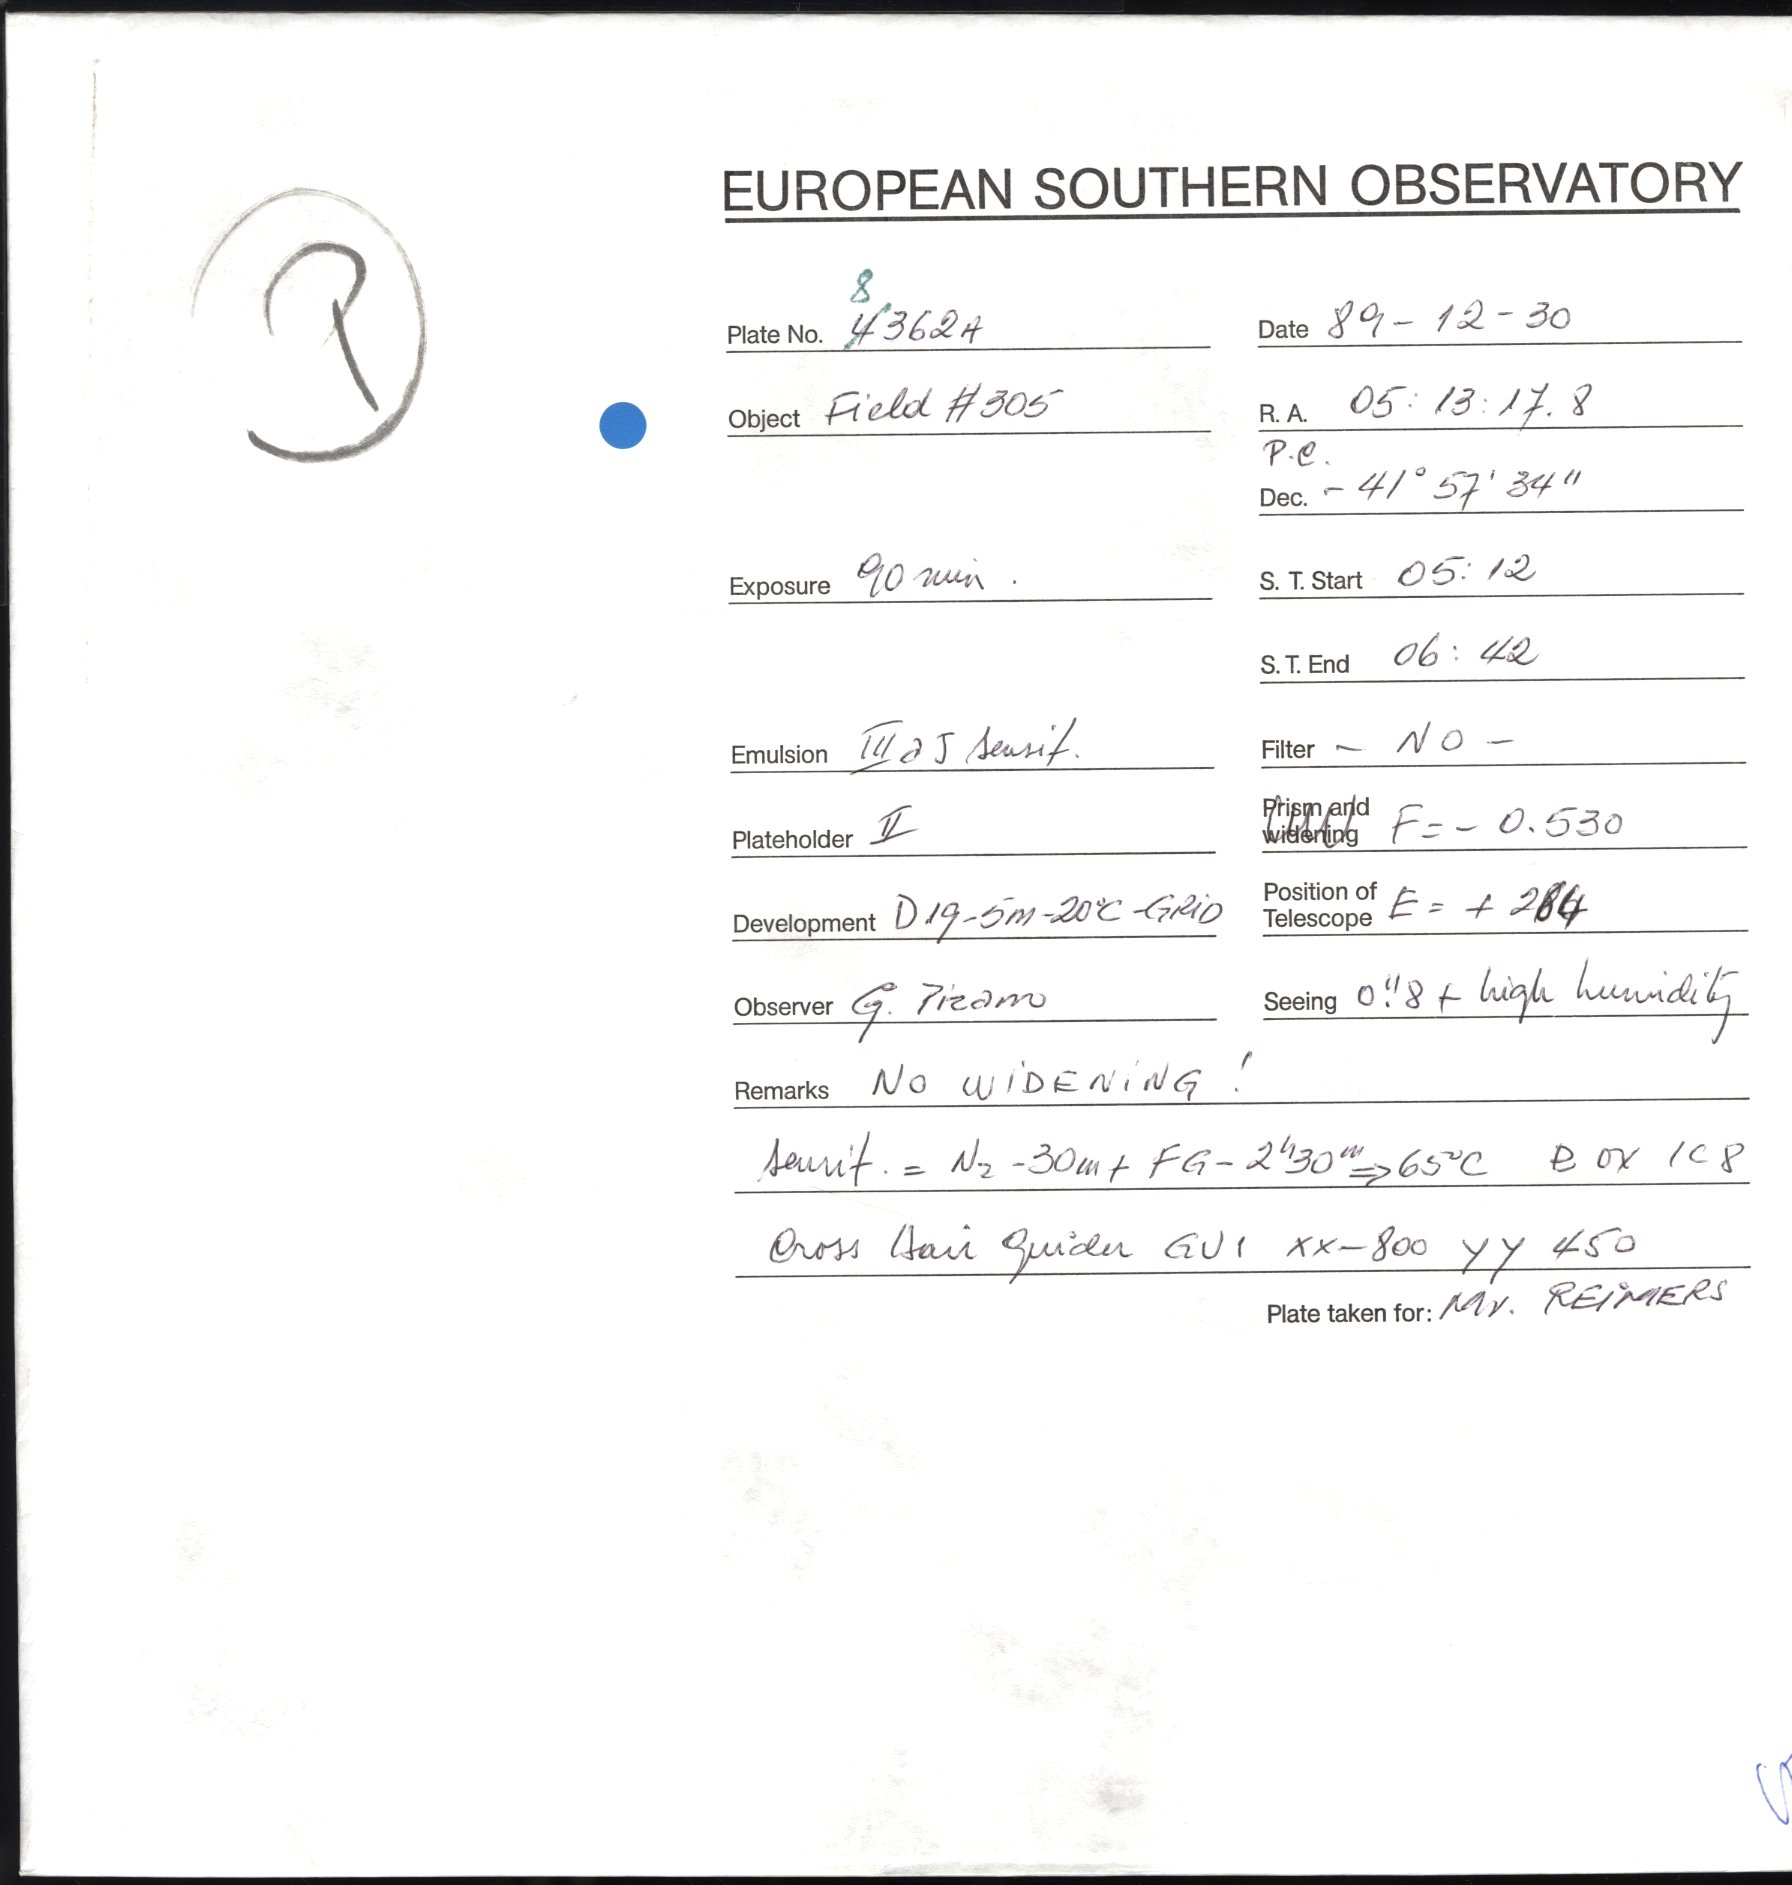 EUROPEAN SOUTHERN OBSERVATORY
R
8
Plate No. 4362A
Date 89-12-30
Object Field #305
R. A. 05:13:17.8
P.C.
Dec. -41° 57' 34"
Exposure 90 min.
S. T. Start 05:12
S. T. End 06:42
Emulsion III a J sensit.
Filter - NO -
Plateholder II
Prism and widening F=- 0.530
Development D19-5m-20°C-GRID
Position of Telescope E= + 284
Observer G. Pizarro
Seeing 0".8 + high humidity
Remarks NO WIDENING!
Sensit. = N2 -30m + FG- 2h30m => 65°C BOX 1C8
Cross Hair guider GU1 XX-800 YY 450
Plate taken for: Mr. REIMERS